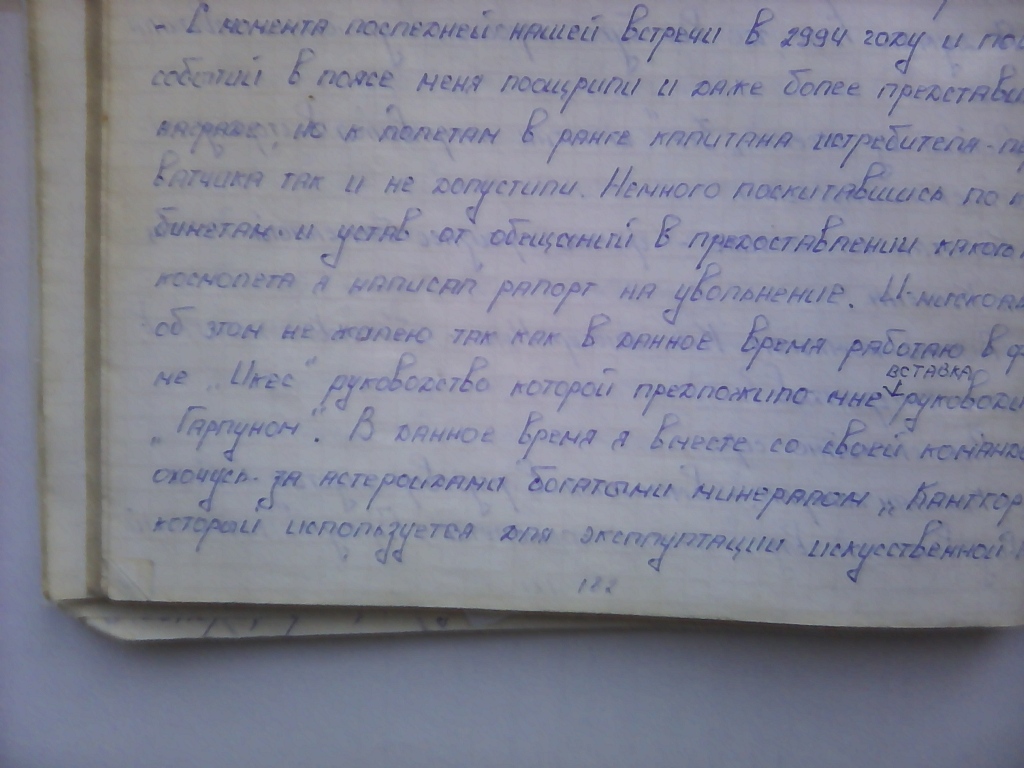 - С момента последней нашей встречи в 2994 году и
событий в поясе меня поощрили и даже более представи
награде, но к полетам в ранге капитана истребителя-пе
ватчика так и не допустили. Немного поскитавшись по
бинетам и устав от обещаний в предоставлении какого
космолета я написал рапорт на увольнение. И нискол
об этом не жалею так как в данное время работаю в ф
ме „Икес" руководство которой предложило мне руковод
ВСТАВКА
„Гарпуном". В данное время я вместе со своей команд
охочусь за астероидами богатыми минералом „Кантхор
который используется для эксплуатации искусственной
182